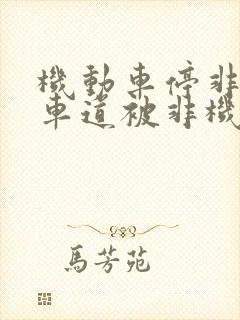 機動車停非
車道被非機
馬芳苑